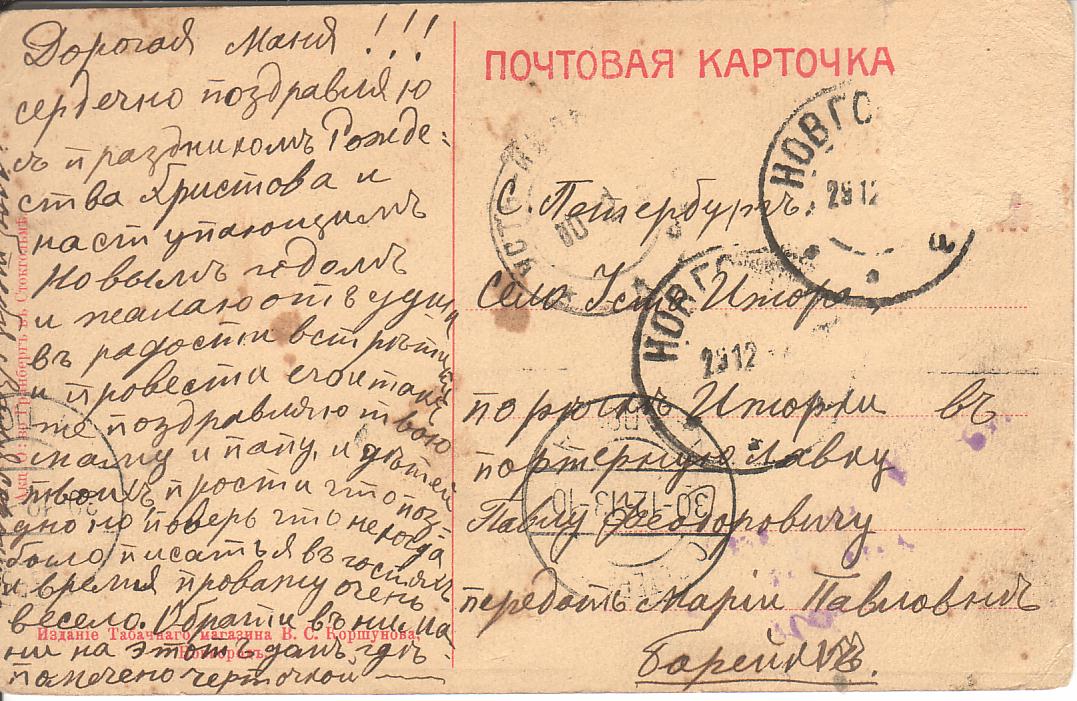 Дорогая Маня!!!
сердечно поздравляю
съ праздникомъ Рожде-
ства Христова и
наступающимъ
Новымъ годомъ
и желаю отъ души
въ радости встрѣтить
и провести его и так
же поздравляю твою
маму и папу, и дѣтей
твоихъ прости что поз-
дно но поверь что некогда
было писать я въ гостяхъ
и время провожу очень
весело. Обрати внима
ни на этотъ домъ, гдѣ
помечено черточкой
Изданіе Табачнаго магазина В. С. Коршунова,
Новгородъ.
Стокгольмъ
ПОЧТОВАЯ КАРТОЧКА
С. Петербургъ.
село Усть Ижора
по рѣчкѣ Ижорки въ
портерную лавку
Павлу Феодоровичу
передать Маріи Павловнѣ
Барейкъ.
НОВГО
29 12
НОВГО
29 12
30-12-13-10